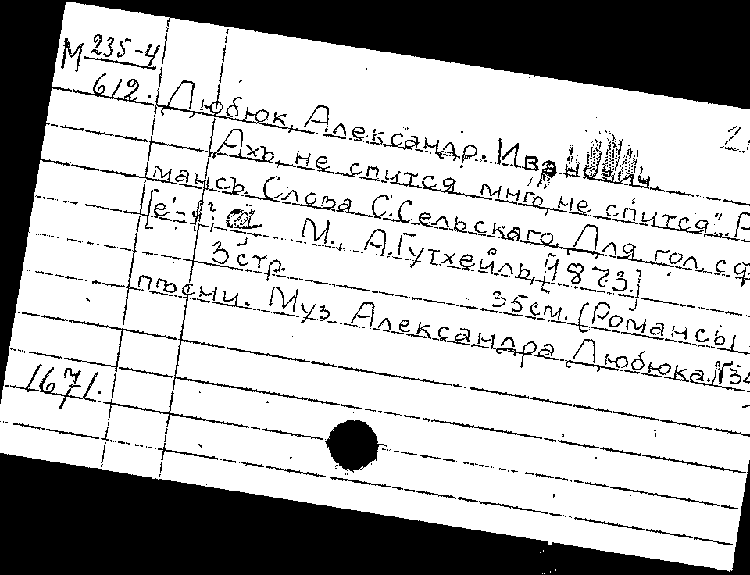 М 235-4
612.
Дюбюк, Александр. Иванович.
Ахъ, не спится мнѣ, не спится". Р
мансъ. Слова С.Сельскаго. Для гол. с ф
М., А.Гутхейль, [1873]
3 стр. 35 см. (Романсы
пѣсни. Муз. Александра Дюбюка. №34
1671.